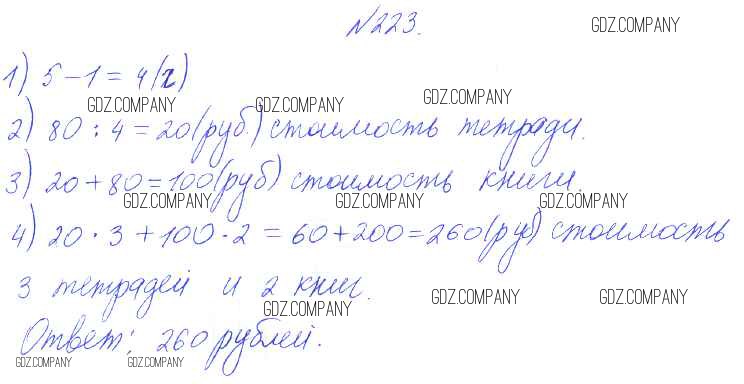 №223. GDZ.COMPANY
1) 5 - 1 = 4 (ч)
GDZ.COMPANY GDZ.COMPANY GDZ.COMPANY
2) 80 : 4 = 20 (руб.) стоимость тетради.
3) 20 + 80 = 100 (руб) стоимость книги.
GDZ.COMPANY GDZ.COMPANY GDZ.COMPANY
4) 20 · 3 + 100 · 2 = 60 + 200 = 260 (руб) стоимость
3 тетрадей и 2 книг.
GDZ.COMPANY GDZ.COMPANY GDZ.COMPANY
Ответ: 260 рублей.
GDZ.COMPANY GDZ.COMPANY